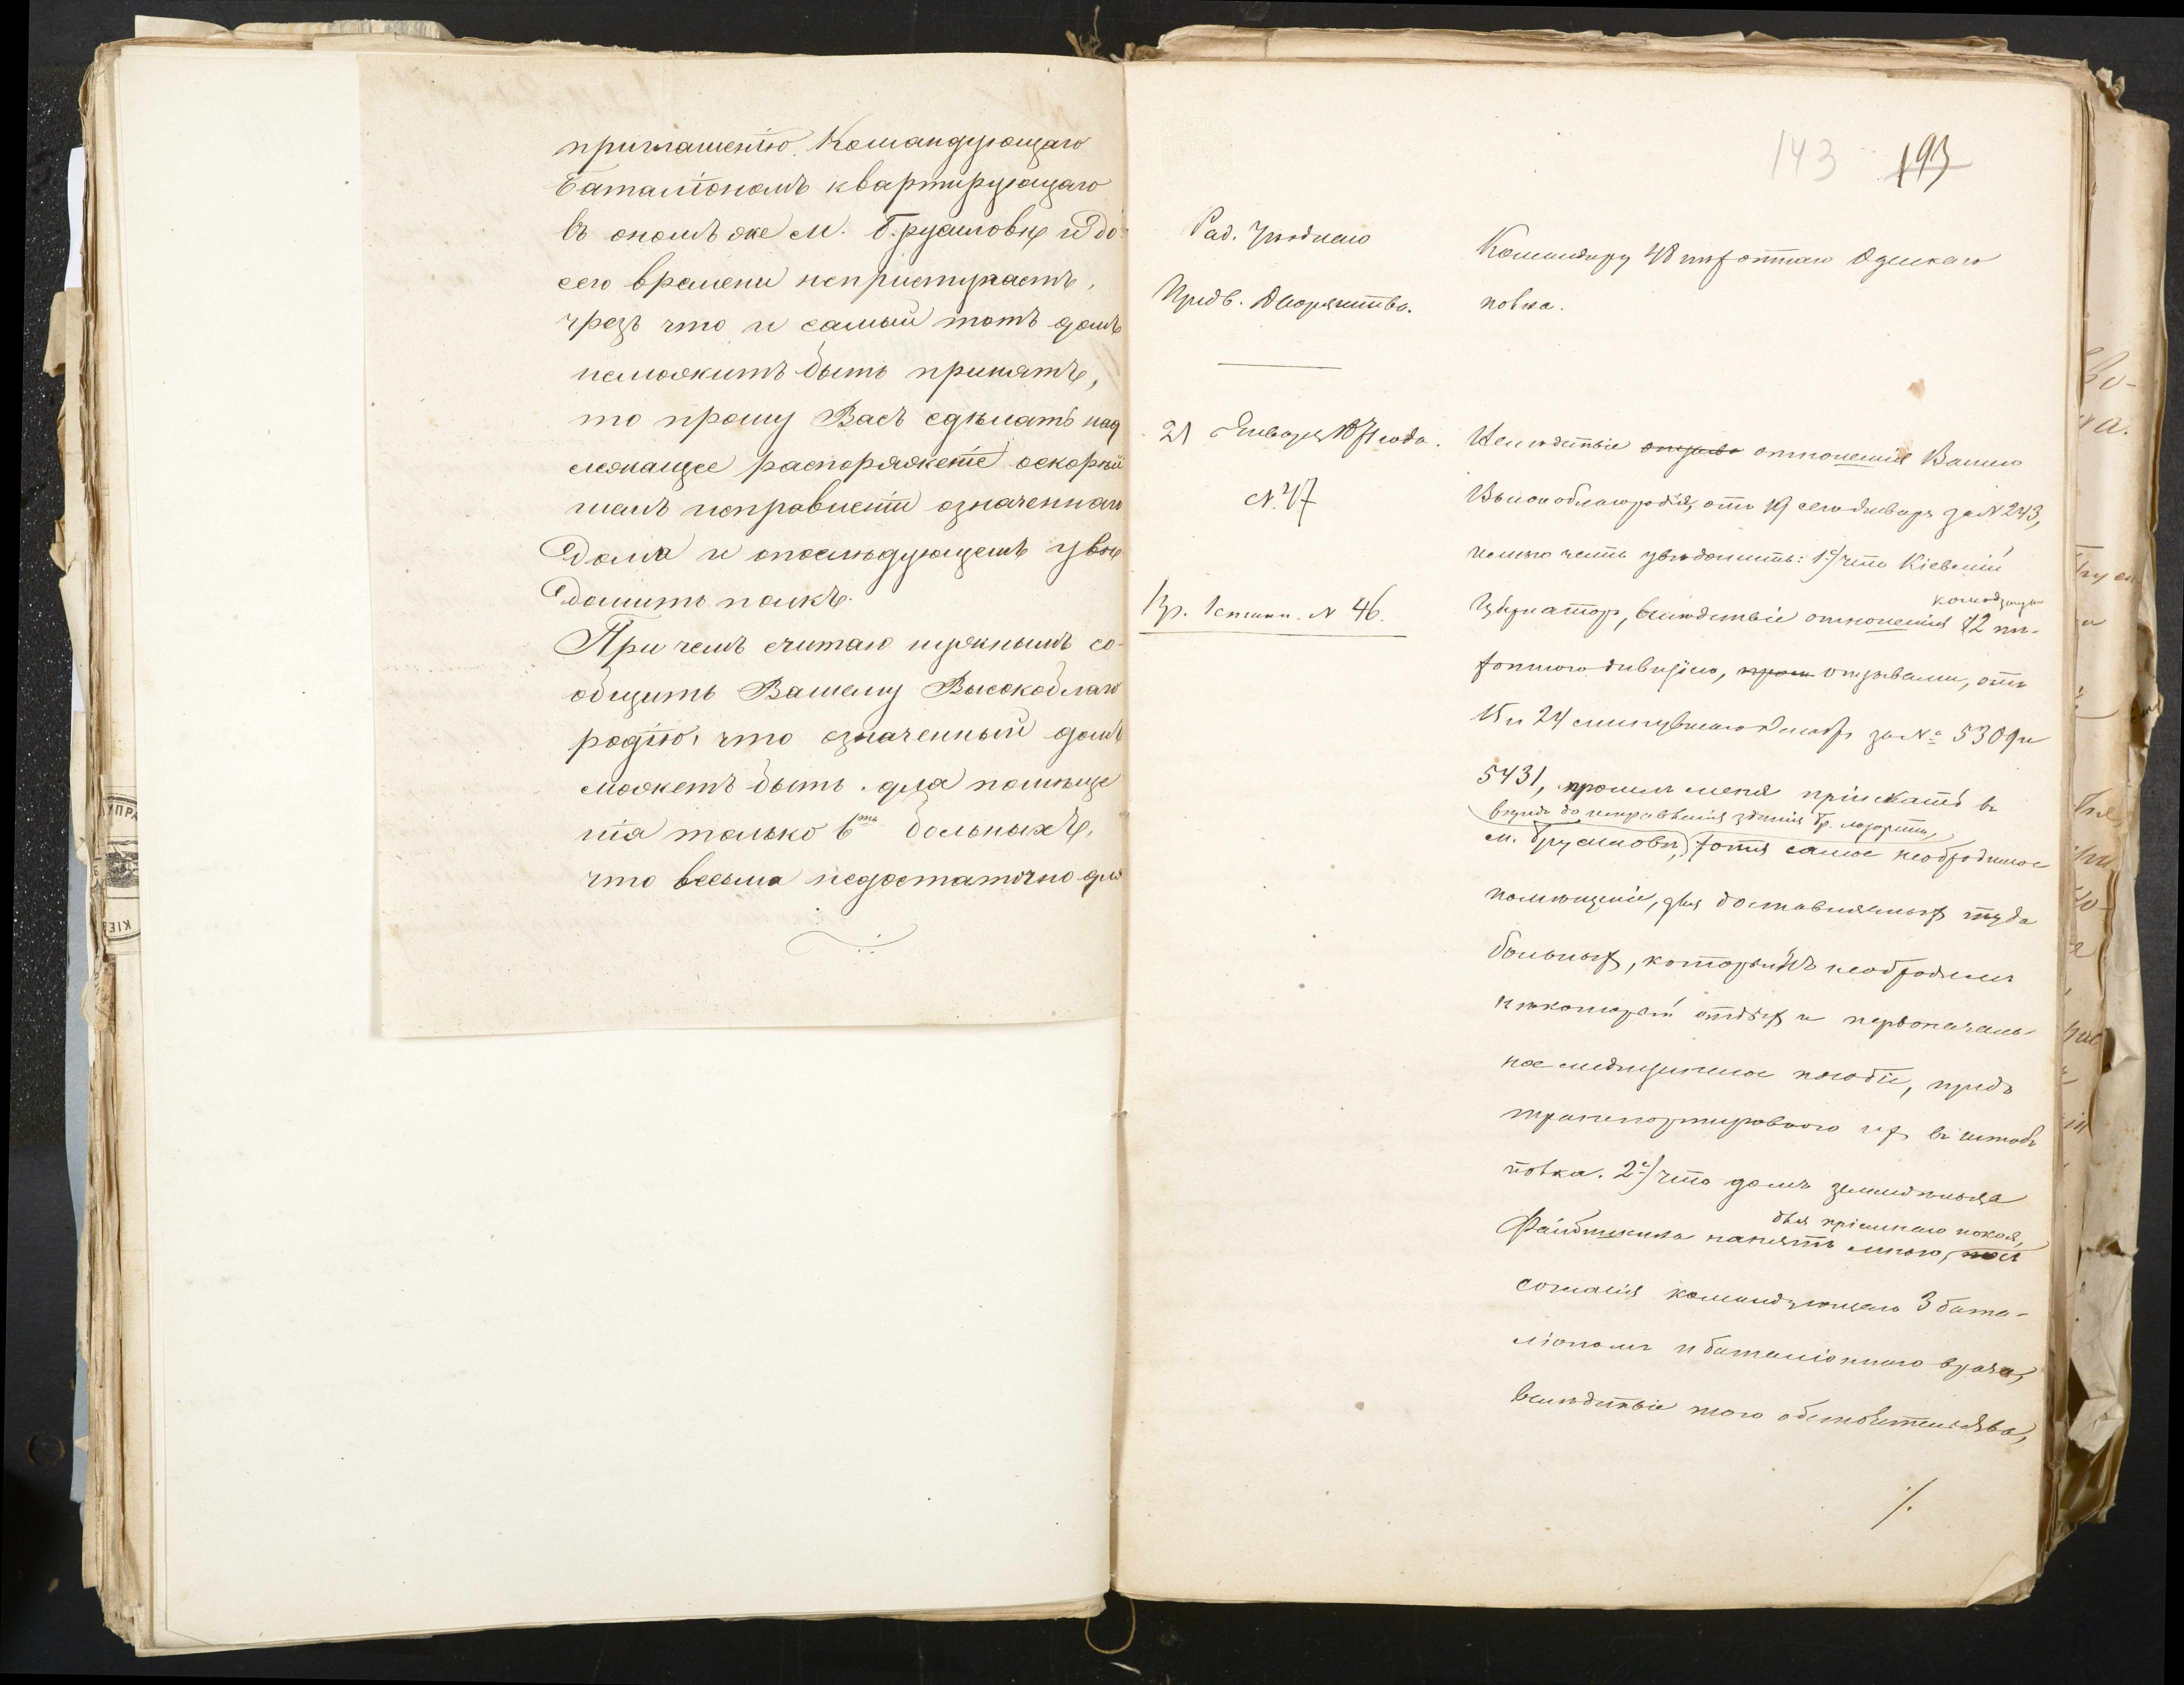 приглашенію Командующаго
баталіономъ квартирующаго
въ ономъ же м. Брусиловѣ и до
сего времени неприступаетъ,
чрезъ что и самый тотъ домъ
неможитъ быть принятъ,
то прошу Васъ сдѣлать над
лежащее распоряженіе оскорѣй
шемъ исправленіи означеннаго
дома и опослѣдующемъ увѣ
домить полкъ.
При чемъ считаю нужнымъ со-
общить Вашему Высокоблаго
родію, что означенный домъ
можетъ быть для помѣще
нія только 6ть больныхъ,
что весьма недостаточно для
143 193
Рад. Уѣзднаго
Предв. Дворянства.
21 Января 1871 года.
№ 47
Кр. Істинн. № 46.
Командиру 48 пѣхотнаго Одескаго
полка.
Вслѣдствіе отношенія Вашего
Высокоблагородія, отъ 19 сего Января за № 243,
имѣю честь увѣдомить: 1е/ что Кіевскій
командую
Губернаторъ, вслѣдствіе отношенія 12 пѣ-
хотною дивизіею, отзывами, отъ
15 и 24 минувшаго за № 5309 и
5431, просилъ меня пріискать въ
впредь до исправленія зданія бр. лазарета,
м. Брусиловѣ, хотя самое необходимое
помѣщеніе, для доставляемыхъ туда
больныхъ, которымъ необходимъ
нѣкоторый отдыхъ и первоначаль-
ное медицинское пособіе, предъ
транспортировкою ихъ въ штабъ
полка. 2е/ что домъ землевладѣльца
для пріемнаго покоя,
нанятъ мною, съ
согласія командующаго 3 бата-
ліономъ и баталіоннаго врача,
вслѣдствіе того обстоятельства,
/.
УПРА
КІЕВ